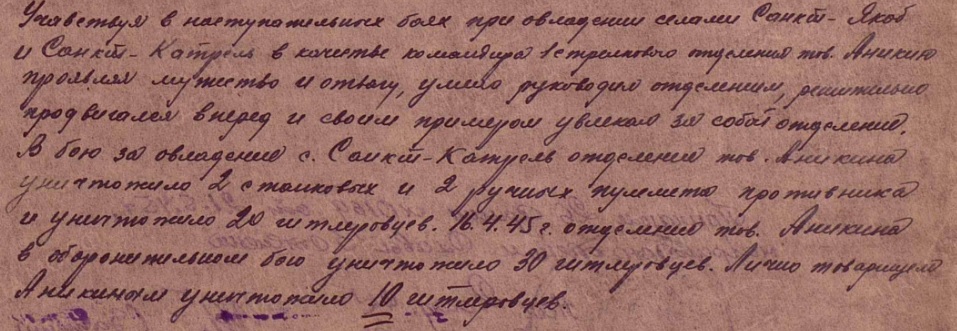 Учавствуя в наступательных боях при овладении селами Санкт-Якоб
и Санкт-Катрель в качестве командира 1 стрелкового отделения тов. Аникин
проявляя мужество и отвагу, умело руководил отделением, решительно
продвигался вперед и своим примером увлекал за собой отделение.
В бою за овладение с. Санкт-Катрель отделение тов. Аникина
уничтожило 2 станковых и 2 ручных пулемета противника
и уничтожило 20 гитлеровцев. 16.4.45 г. отделение тов. Аникина
в оборонительном бою уничтожило 30 гитлеровцев. Лично товарищем
Аникиным уничтожено 10 гитлеровцев.